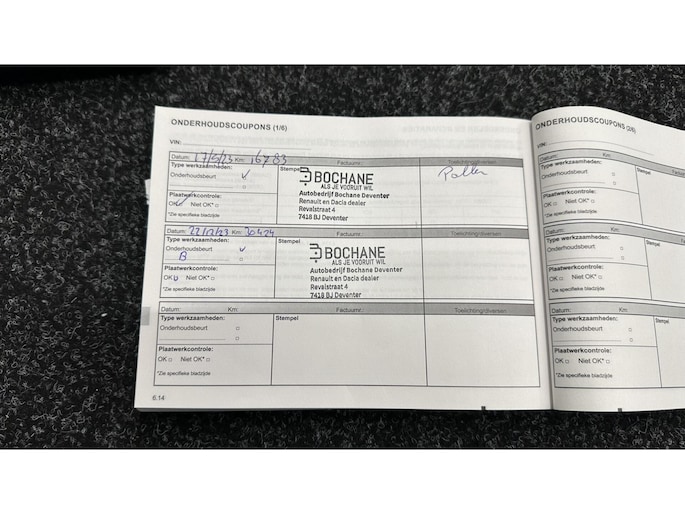 ONDERHOUDSCOUPONS (1/6)
VIN:
Datum: 17/5/23 Km: 16783 Factuurnr.: Toelichting/diversen
Type werkzaamheden:
Onderhoudsbeurt
Stempel
BOCHANE
ALS JE VOORUIT WIL
Autobedrijf Bochane Deventer
Renault en Dacia dealer
Revalstraat 4
7418 BJ Deventer
Pollen
Plaatwerkcontrole:
OK Niet OK*
*Zie specifieke bladzijde
Datum: 22/12/23 Km: 30424 Factuurnr.: Toelichting/diversen
Type werkzaamheden:
Onderhoudsbeurt
B
Stempel
BOCHANE
ALS JE VOORUIT WIL
Autobedrijf Bochane Deventer
Renault en Dacia dealer
Revalstraat 4
7418 BJ Deventer
Plaatwerkcontrole:
OK Niet OK*
*Zie specifieke bladzijde
Datum: Km: Factuurnr.: Toelichting/diversen
Type werkzaamheden:
Onderhoudsbeurt
Stempel
Plaatwerkcontrole:
OK Niet OK*
*Zie specifieke bladzijde
6.14
ONDERHOUDSCOUPONS (2/6)
VIN:
Datum: Km:
Type werkzaamheden:
Onderhoudsbeurt
Stempel
Plaatwerkcontrole:
OK Niet OK*
*Zie specifieke bladzijde
Datum: Km:
Type werkzaamheden:
Onderhoudsbeurt
Stempel
Plaatwerkcontrole:
OK Niet OK*
*Zie specifieke bladzijde
Datum: Km:
Type werkzaamheden:
Onderhoudsbeurt
Stempel
Plaatwerkcontrole:
OK Niet OK*
*Zie specifieke bladzijde